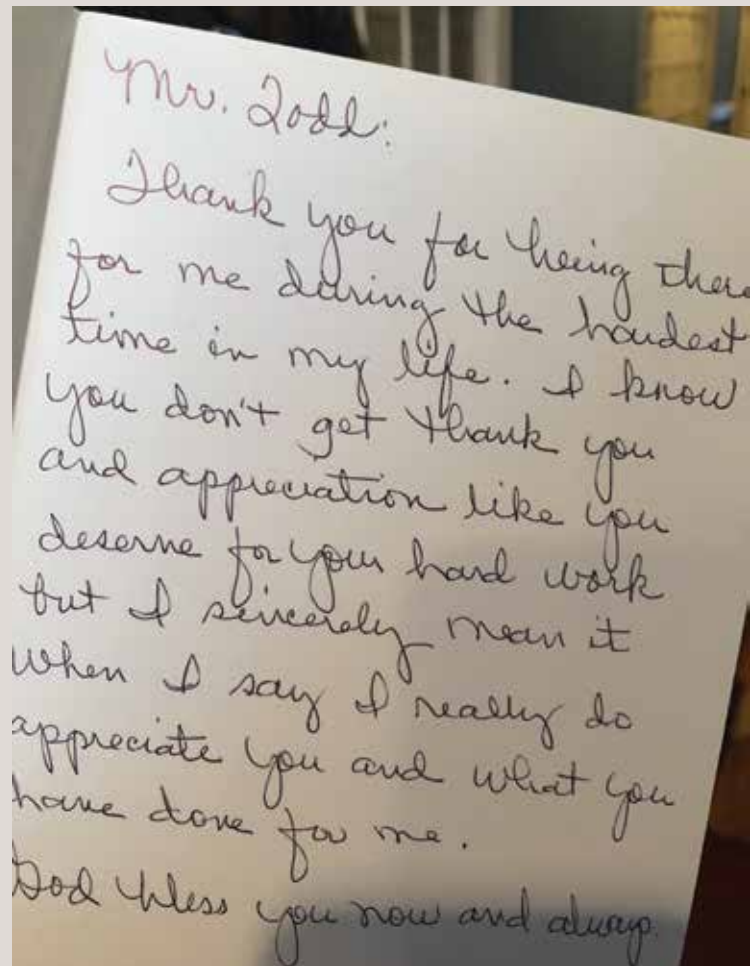 Mr. Todd:
Thank you for being there
for me during the hardest
time in my life. I know
you don't get thank you
and appreciation like you
deserve for your hard work
but I sincerely mean it
when I say I really do
appreciate you and what you
have done for me.
God bless you now and always.